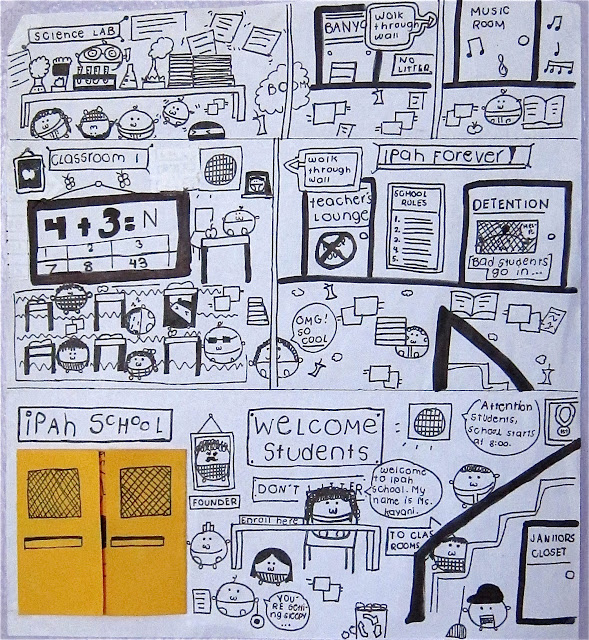 SCIENCE LAB
BOOM
BANYO
walk
through
wall
NO
LITTER
MUSIC
ROOM
CLASSROOM 1
4 + 3 = N
1 2 3
7 8 43
walk
through
wall
iPAH FOREVER!
teacher's
LOUNGE
SCHOOL
RULES
1.
2.
3.
4.
5.
DETENTION
HELP!
Bad students
go in...
OMG!
SO
COOL
iPAH SCHOOL
FOUNDER
WELCOME
Students
DON'T LITTER
Enroll here
welcome
to ipah
school. My
name is Ms.
Kavani.
Attention
Students,
school starts
at 8:00.
TO CLASS
ROOMS
JANITORS
CLOSET
YOU'
RE GETTI-
NG SLEEPY
...